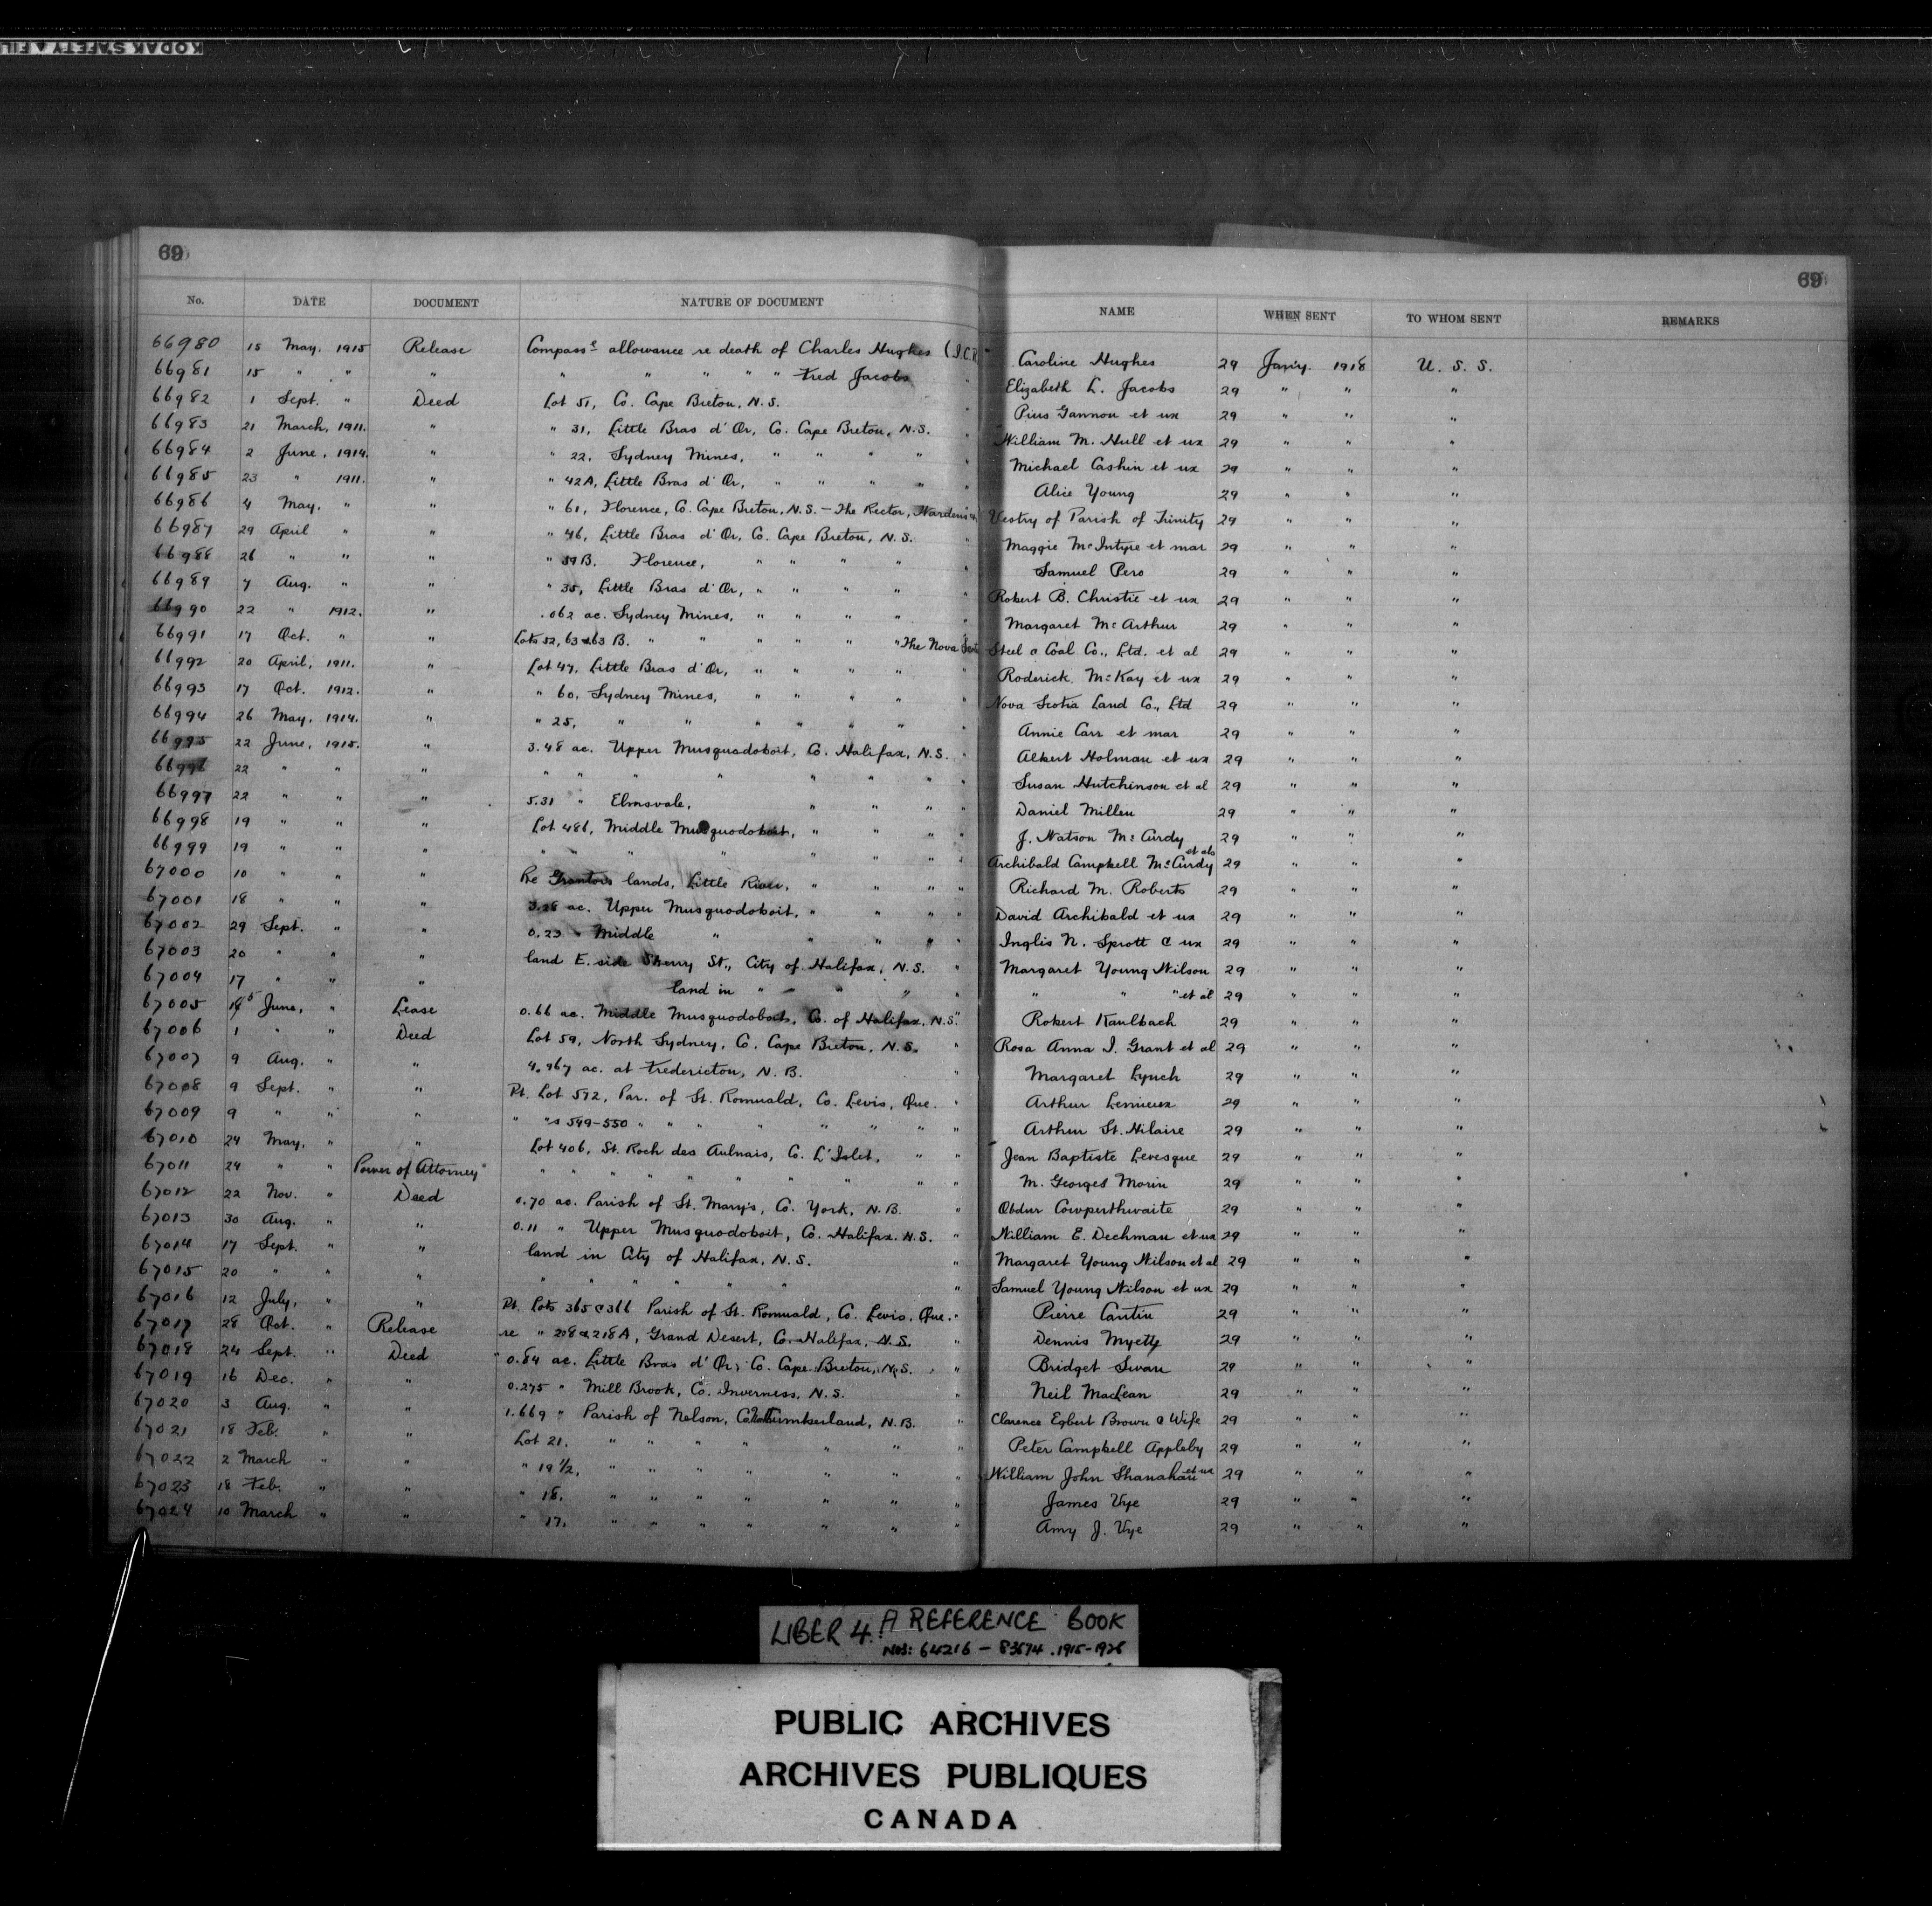 KODAK SAFETY FIL
69
69
No. DATE DOCUMENT NATURE OF DOCUMENT NAME WHEN SENT TO WHOM SENT REMARKS
66980 15 May, 1915 Release Compass.e allowance re death of Charles Hughes (I.C.R. Caroline Hughes 29 Jan'y. 1918 U. S. S.
66981 15 " " " " " " " " Fred Jacobs " Elizabeth L. Jacobs 29 " " "
66982 1 Sept. " Deed Lot 51, Co. Cape Breton, N.S. " Pius Gannon et ux 29 " " "
66983 21 March, 1911. " " 31, Little Bras d'Or, Co. Cape Breton, N.S. " William M. Hull et ux 29 " " "
66984 2 June, 1914. " " 22, Sydney Mines, " " " " " Michael Cashin et ux 29 " " "
66985 23 " 1911. " " 42A, Little Bras d'Or, " " " " " Alice Young 29 " " "
66986 4 May, " " " 61, Florence, Co. Cape Breton, N.S. — The Rector, Wardens & Vestry of Parish of Trinity 29 " " "
66987 29 April " " " 46, Little Bras d'Or, Co. Cape Breton, N.S. " Maggie McIntyre et mar 29 " " "
66988 26 " " " " 59B. Florence, " " " " " Samuel Pero 29 " " "
66989 7 Aug. " " " 35, Little Bras d'Or, " " " " " Robert B. Christie et ux 29 " " "
66990 22 " 1912. " .062 ac. Sydney Mines, " " " " " Margaret McArthur 29 " " "
66991 17 Oct. " " Lots 52, 63 & 63 B. " " " " " " The Nova Scotia Steel & Coal Co., Ltd. et al 29 " " "
66992 20 April, 1911. " Lot 47, Little Bras d'Or, " " " " " Roderick McKay et ux 29 " " "
66993 17 Oct. 1912. " " 60, Sydney Mines, " " " " " Nova Scotia Land Co., Ltd 29 " " "
66994 26 May, 1914. " " 25, " " " " " " " Annie Carr et mar 29 " " "
66995 22 June, 1915. " 3.48 ac. Upper Musquodoboit, Co. Halifax, N.S. " Albert Holman et ux 29 " " "
66996 22 " " " " " " " " " " " Susan Hutchinson et al 29 " " "
66997 22 " " " 5.31 " Elmsvale, " " " " Daniel Millen 29 " " "
66998 19 " " " Lot 486, Middle Musquodoboit, " " " " J. Watson McCurdy 29 " " "
66999 19 " " " " " " " " " " " Archibald Campbell McCurdy et als 29 " " "
67000 10 " " " Re Grantors lands, Little River, " " " " Richard M. Roberts 29 " " "
67001 18 " " " 3.28 ac. Upper Musquodoboit, " " " " David Archibald et ux 29 " " "
67002 29 Sept. " " 0.23 " Middle " " " " " Inglis N. Sprott & ux 29 " " "
67003 20 " " " land E. side Sherry St., City of Halifax, N.S. " Margaret Young Wilson 29 " " "
67004 17 " " " land in " " " " " " " " et al 29 " " "
67005 15 June, " Lease 0.66 ac. Middle Musquodoboit, Co. of Halifax, N.S. " Robert Kaulbach 29 " " "
67006 1 " " Deed Lot 59, North Sydney, Co. Cape Breton, N.S. " Rosa Anna I. Grant et al 29 " " "
67007 9 Aug. " " 4.967 ac. at Fredericton, N.B. " Margaret Lynch 29 " " "
67008 9 Sept. " " Pt. Lot 572, Par. of St. Romuald, Co. Levis, Que. " Arthur Lemieux 29 " " "
67009 9 " " " " "s 549-550 " " " " " " " " Arthur St. Hilaire 29 " " "
67010 24 May, " " Lot 406, St. Roch des Aulnais, Co. L'Islet, " " Jean Baptiste Levesque 29 " " "
67011 24 " " Power of Attorney " " " " " " " " " " M. Georges Morin 29 " " "
67012 22 Nov. " Deed 0.70 ac. Parish of St. Mary's, Co. York, N.B. " Obdur Cowperthwaite 29 " " "
67013 30 Aug. " " 0.11 " Upper Musquodoboit, Co. Halifax. N.S. " William E. Dechman et ux 29 " " "
67014 17 Sept. " " land in City of Halifax, N.S. " Margaret Young Wilson et al 29 " " "
67015 20 " " " " " " " " " " Samuel Young Wilson et ux 29 " " "
67016 12 July, " " Pt. Lots 365 & 366 Parish of St. Romuald, Co. Levis, Que. " Pierre Cantin 29 " " "
67017 28 Oct. " Release re " 218 & 218A, Grand Desert, Co. Halifax, N.S. " Dennis Myette 29 " " "
67018 24 Sept. " Deed 0.84 ac. Little Bras d'Or, Co. Cape Breton, N.S. " Bridget Swan 29 " " "
67019 16 Dec. " " 0.275 " Mill Brook, Co. Inverness, N.S. " Neil MacLean 29 " " "
67020 3 Aug. " " 1.669 " Parish of Nelson, Co. Northumberland, N.B. " Clarence Egbert Brown & Wife 29 " " "
67021 18 Feb. " " Lot 21. " " " " " " " Peter Campbell Appleby 29 " " "
67022 2 March " " " 19 1/2, " " " " " " " William John Shanahan et ux 29 " " "
67023 18 Feb. " " " 18, " " " " " " " James Vye 29 " " "
67024 10 March " " " 17, " " " " " " " Amy J. Vye 29 " " "
LIBER 4. A REFERENCE BOOK
NOS: 64216 — 83674. 1915-1928
PUBLIC ARCHIVES
ARCHIVES PUBLIQUES
CANADA